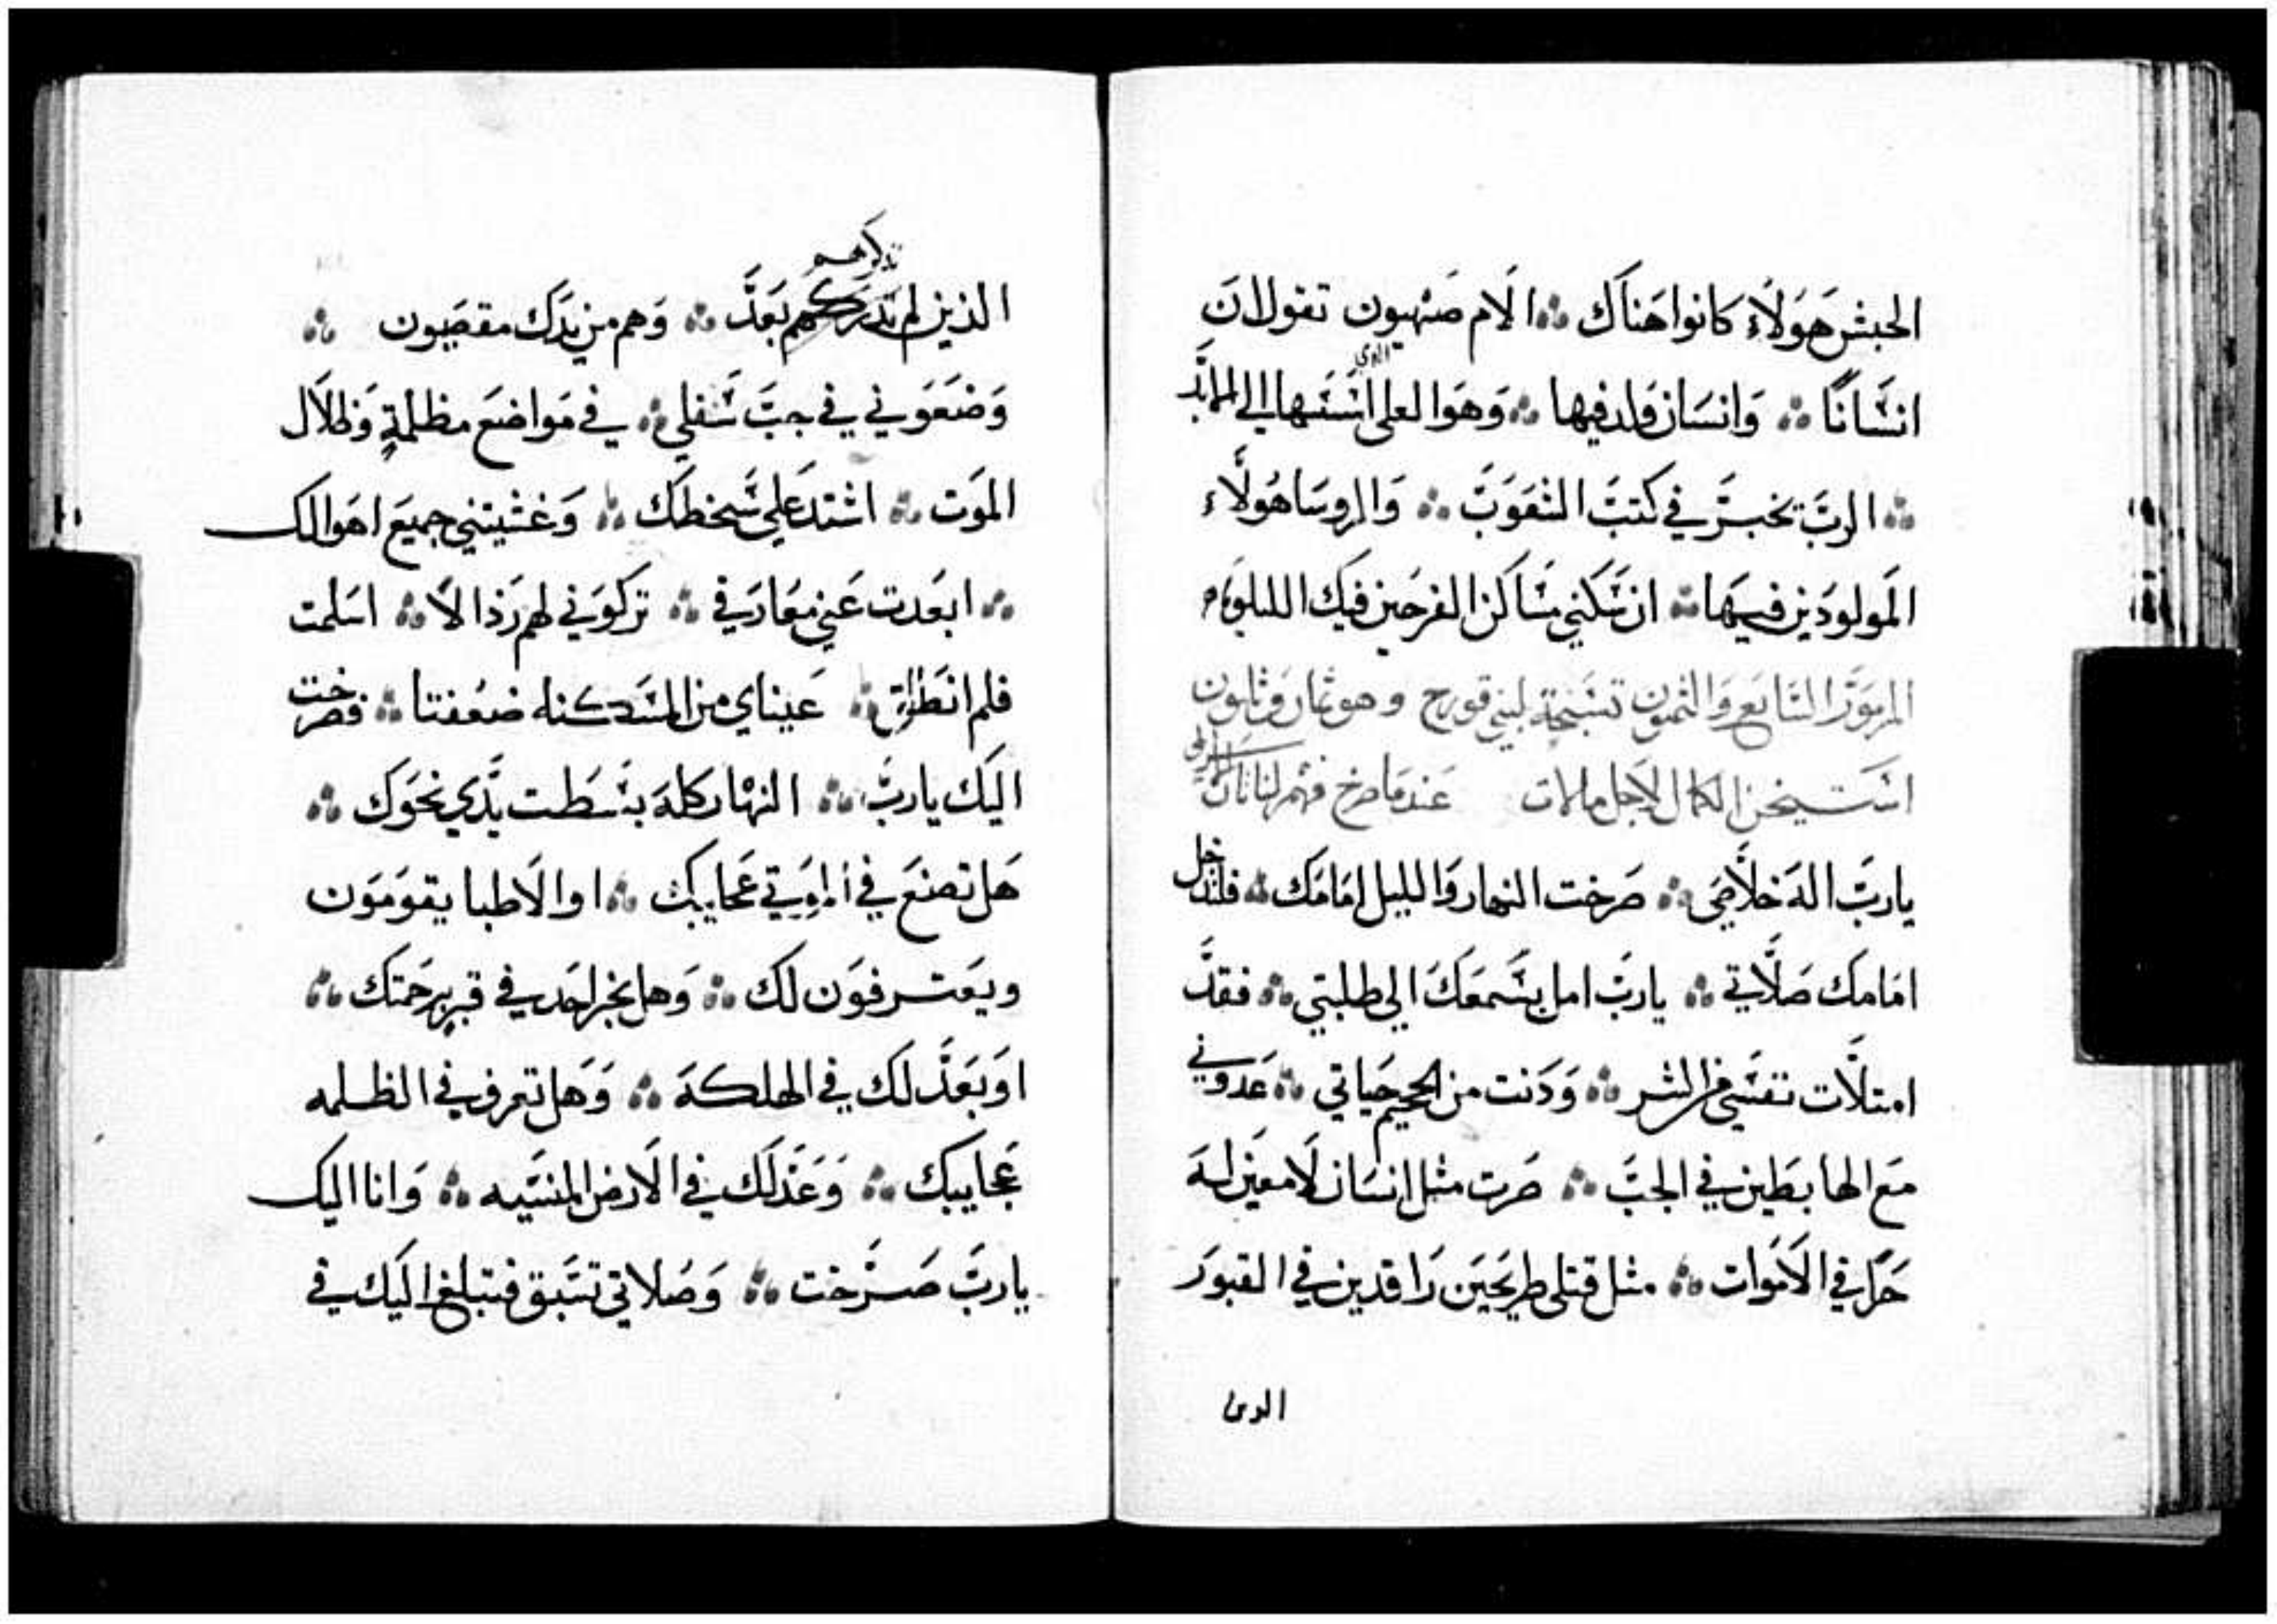 الحبش هَولَاءِ كانوا هَناك ∴ الَام صَهيون تقول ان
انسَانًا ∴ وَانسَان ولد فيها ∴ وَهوَ العلي الذي اسَسَها الي الابَد
∴ الربَ يخبرَ في كتبَ الشعَوَبَ ∴ وَالروسَا هُولَاء
المَولودَين فيهَا ∴ ان سَكني مسَاكن الفرحَين فيك الليلويا
المزمَوَر السَابعَ وَالثمنون تسَبحَة لبني قورح وهو ثمان وثمنون
يا ربَ الهَ خلَاصَي ∴ صَرخت النهار وَالليل امَامَك ∴ فلتدخل
امَامك صَلَاتي ∴ يا ربَ امل بسَمعَكَ الي طلبتي ∴ فقدَ
امتلَات نفسَي من الشر ∴ وَدَنت من الجحيم حَياتي ∴ عَدوني
مَع الهابطين في الجبَ ∴ صَرت مثل انسَان لَا معَين لهَ
حَرًا في الَامَوات ∴ مثل قتلى طريحَين رَاقدين في القبوَر
الدين
تذكرهم
الذين لم بَعَدَ ∴ وَهم من يدَك مقصَيون ∴
وَضعَوَني في جبَ سَفلي ∴ في مَواضعَ مظلمةٍ وَظلَال
الموَت ∴ اشتدَ عَلي سَخطَك ∴ وَغشيتني جميعَ اهَوالك
∴ ابعَدت عَني مَعَارَفي ∴ تركوَني لهم رَذالًا ∴ اسَلمت
فلم انطَلق ∴ عَيناي من المسَكنه ضعُفتا ∴ فصَرخت
اليَك يا ربَ ∴ النهَار كلهَ بسَطت يَدَي نحَوَك ∴
هَل تصنعَ في امواتي عَجايبك ∴ او الَاطبا يقوَمَوَن
ويعَترفوَن لك ∴ وَهل يخبر احَد في قبرٍ برحَمتك ∴
اوَ بعَدَلك في الهلكةَ ∴ وَهَل تعرف في الظلمه
عَجايبك ∴ وَعَدَلَك في الَارض المنسَيه ∴ وَانا اليك
يا ربَ صَرَخت ∴ وَصَلاتي تسَبق فتبلغ اليَك في